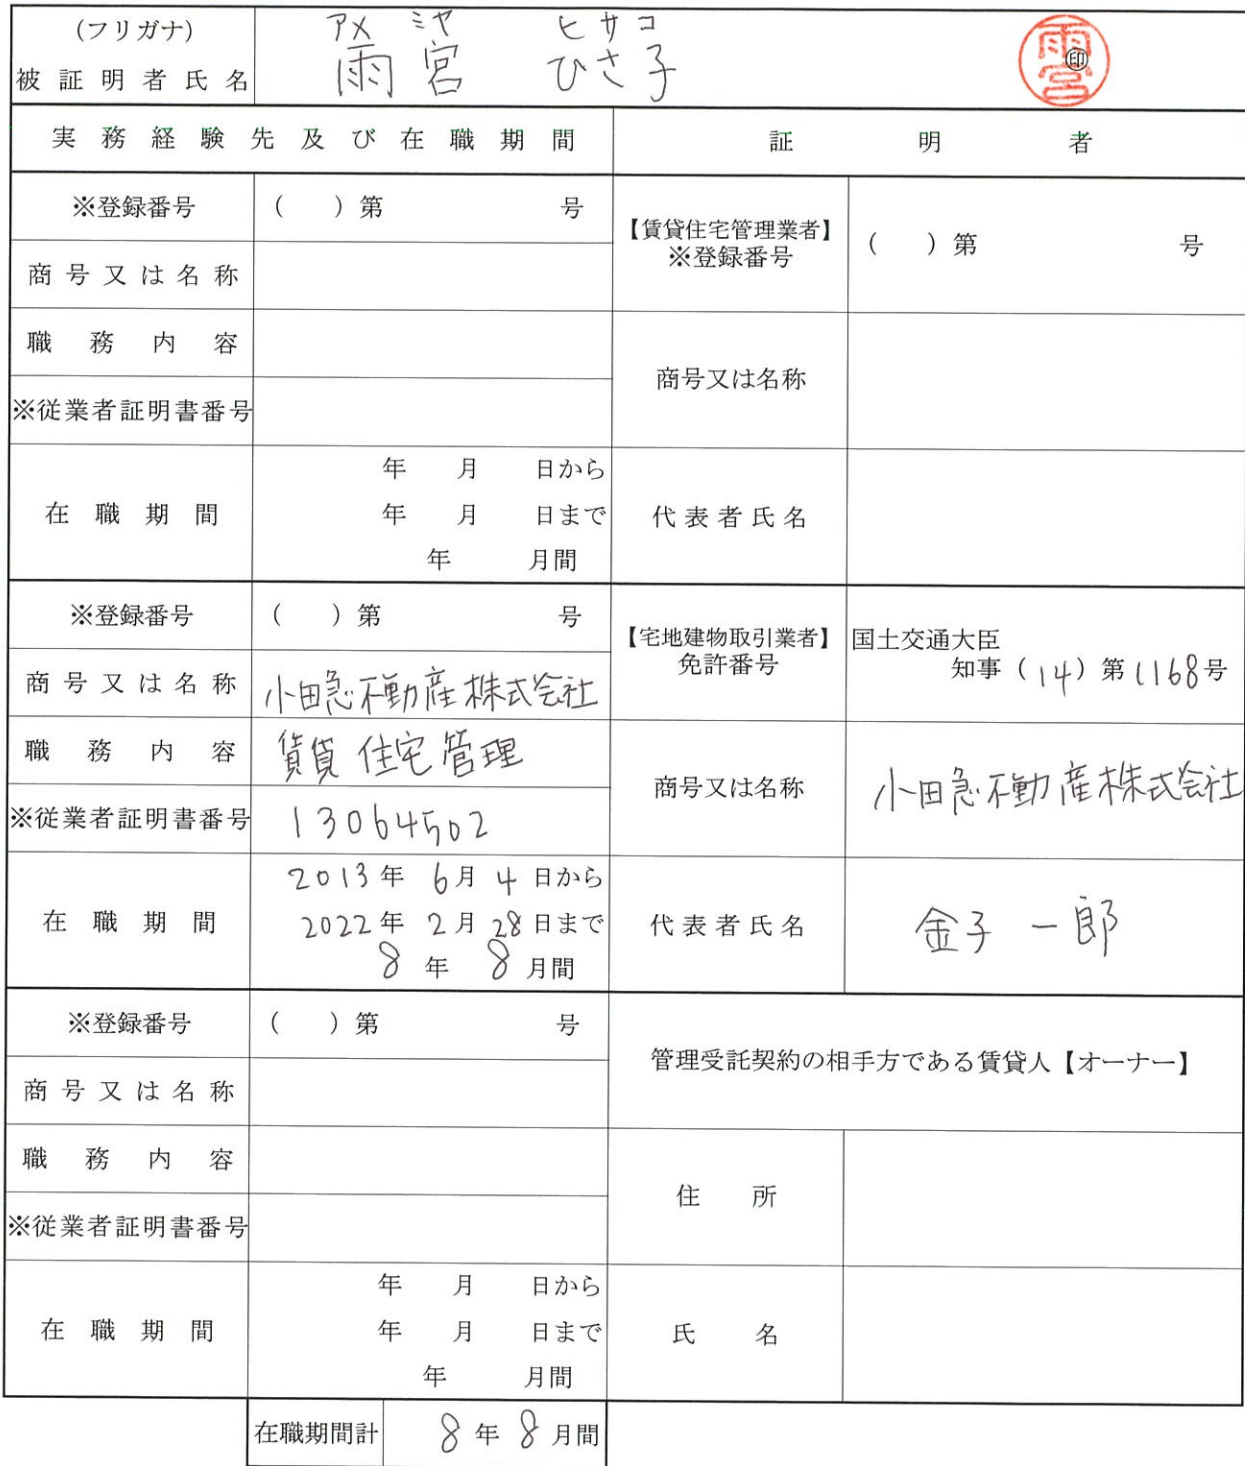 (フリガナ) アメ ミヤ ヒサコ
被証明者氏名 雨宮 ひさ子 ㊞ 雨宮
実務経験先及び在職期間 証明者
※登録番号 ( ) 第 号
商号又は名称
職務内容
※従業者証明書番号
在職期間 年 月 日から
年 月 日まで
年 月間
【賃貸住宅管理業者】
※登録番号 ( ) 第 号
商号又は名称
代表者氏名
※登録番号 ( ) 第 号
商号又は名称 小田急不動産株式会社
職務内容 賃貸住宅管理
※従業者証明書番号 13064502
在職期間 2013年 6月 4日から
2022年 2月 28日まで
8年 8月間
【宅地建物取引業者】
免許番号
国土交通大臣
知事 (14) 第1168号
商号又は名称 小田急不動産株式会社
代表者氏名 金子 一郎
※登録番号 ( ) 第 号
商号又は名称
職務内容
※従業者証明書番号
在職期間 年 月 日から
年 月 日まで
年 月間
管理受託契約の相手方である賃貸人【オーナー】
住所
氏名
在職期間計 8年 8月間